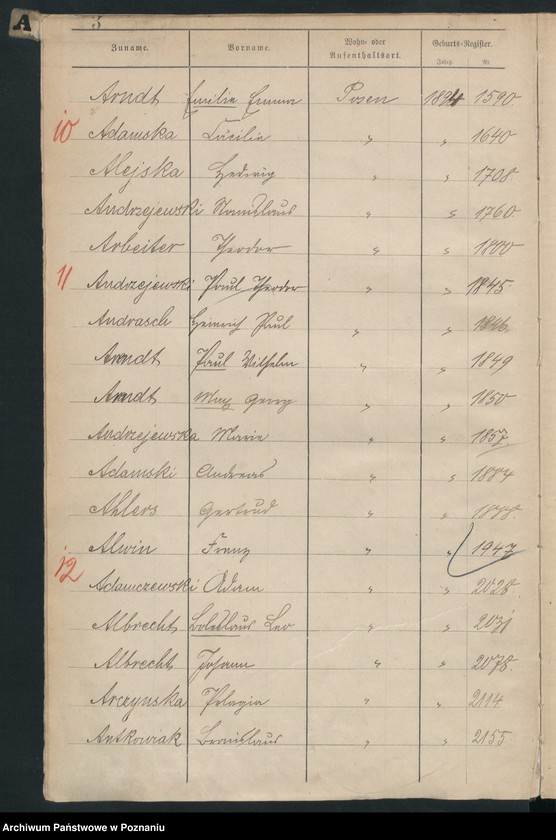 A 3
Zuname. Vorname. Wohn- oder Aufenthaltsort. Geburts-Register.
Jahrg. Nr.
Arndt Emilie Emma Posen 1894 1590
10
Adamska Cäcilie " " 1640
Alejska Hedwig " " 1708
Andrzejewski Stanislaus " " 1760
Arbeiter Theodor " " 1800
11
Andrzejewski Paul Theodor " " 1845
Andrasch Heinrich Paul " " 1846
Arndt Paul Wilhelm " " 1849
Arndt Max Georg " " 1850
Andrzejewska Marie " " 1857
Adamski Andreas " " 1884
Ahlers Gertrud " "
Alwin Franz " " 1947
12
Adamczewski Adam " " 2028
Albrecht Boleslaus Leo " " 2031
Albrecht Johann " " 2078
Arczynska Pelagia " " 2114
Antkowiak Bronislaus " " 2155
Archiwum Państwowe w Poznaniu